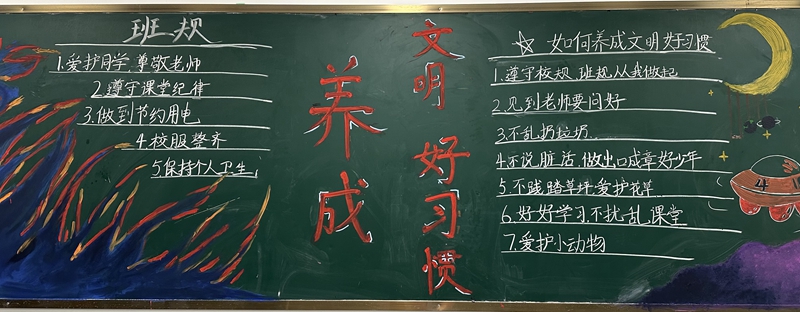 班规
1.爱护同学,尊敬老师
2.遵守课堂纪律
3.做到节约用电
4.校服整齐
5.保持个人卫生
养成
文明
好习惯
☆ 如何养成文明好习惯
1.遵守校规 班规从我做起
2.见到老师要问好
3.不乱扔垃圾
4.不说脏话,做出口成章好少年
5.不践踏草坪 爱护花草
6.好好学习不扰乱课堂
7.爱护小动物
4